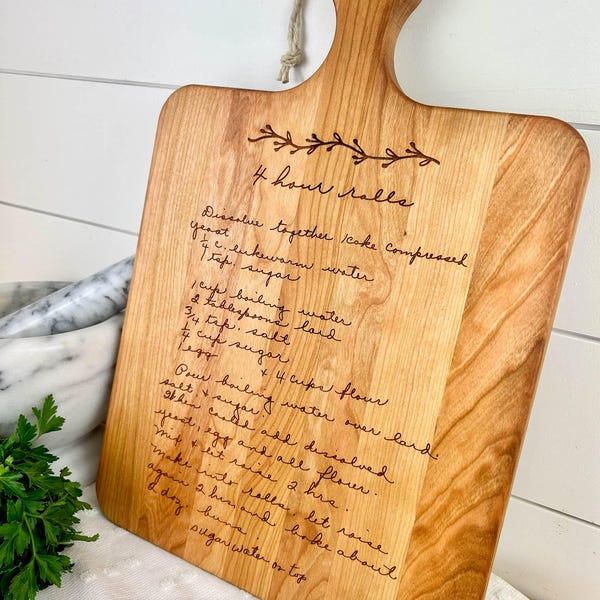 4 hour rolls
Dissolve together 1 cake compressed
yeast
1/4 c. lukewarm water
1 tsp. sugar
1 cup boiling water
2 tablespoons lard
3/4 tsp. salt
1/4 cup sugar
1 egg & 4 cups flour
Pour boiling water over lard.
salt & sugar,
When cooled add dissolved
yeast, egg and all flour.
Mix & let raise 2 hrs.
make into rolls, let raise
again 2 hrs, and bake about
2 doz. buns.
sugar water on top